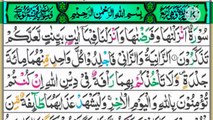 بِسْمِ اللهِ الرَّحْمٰنِ الرَّحِيْمِ
سُوْرَةٌ اَنْزَلْنٰهَا وَفَرَضْنٰهَا وَاَنْزَلْنَا فِيْهَآ اٰيٰتٍۭ بَيِّنٰتٍ لَّعَلَّكُمْ
تَذَكَّرُوْنَ اَلزَّانِيَةُ وَالزَّانِيْ فَاجْلِدُوْا كُلَّ وَاحِدٍ مِّنْهُمَا مِائَةَ
جَلْدَةٍ وَّلَا تَأْخُذْكُمْ بِهِمَا رَأْفَةٌ فِيْ دِيْنِ اللهِ اِنْ كُنْتُمْ
تُؤْمِنُوْنَ بِاللهِ وَالْيَوْمِ الْاٰخِرِ وَلْيَشْهَدْ عَذَابَهُمَا طَآئِفَةٌ